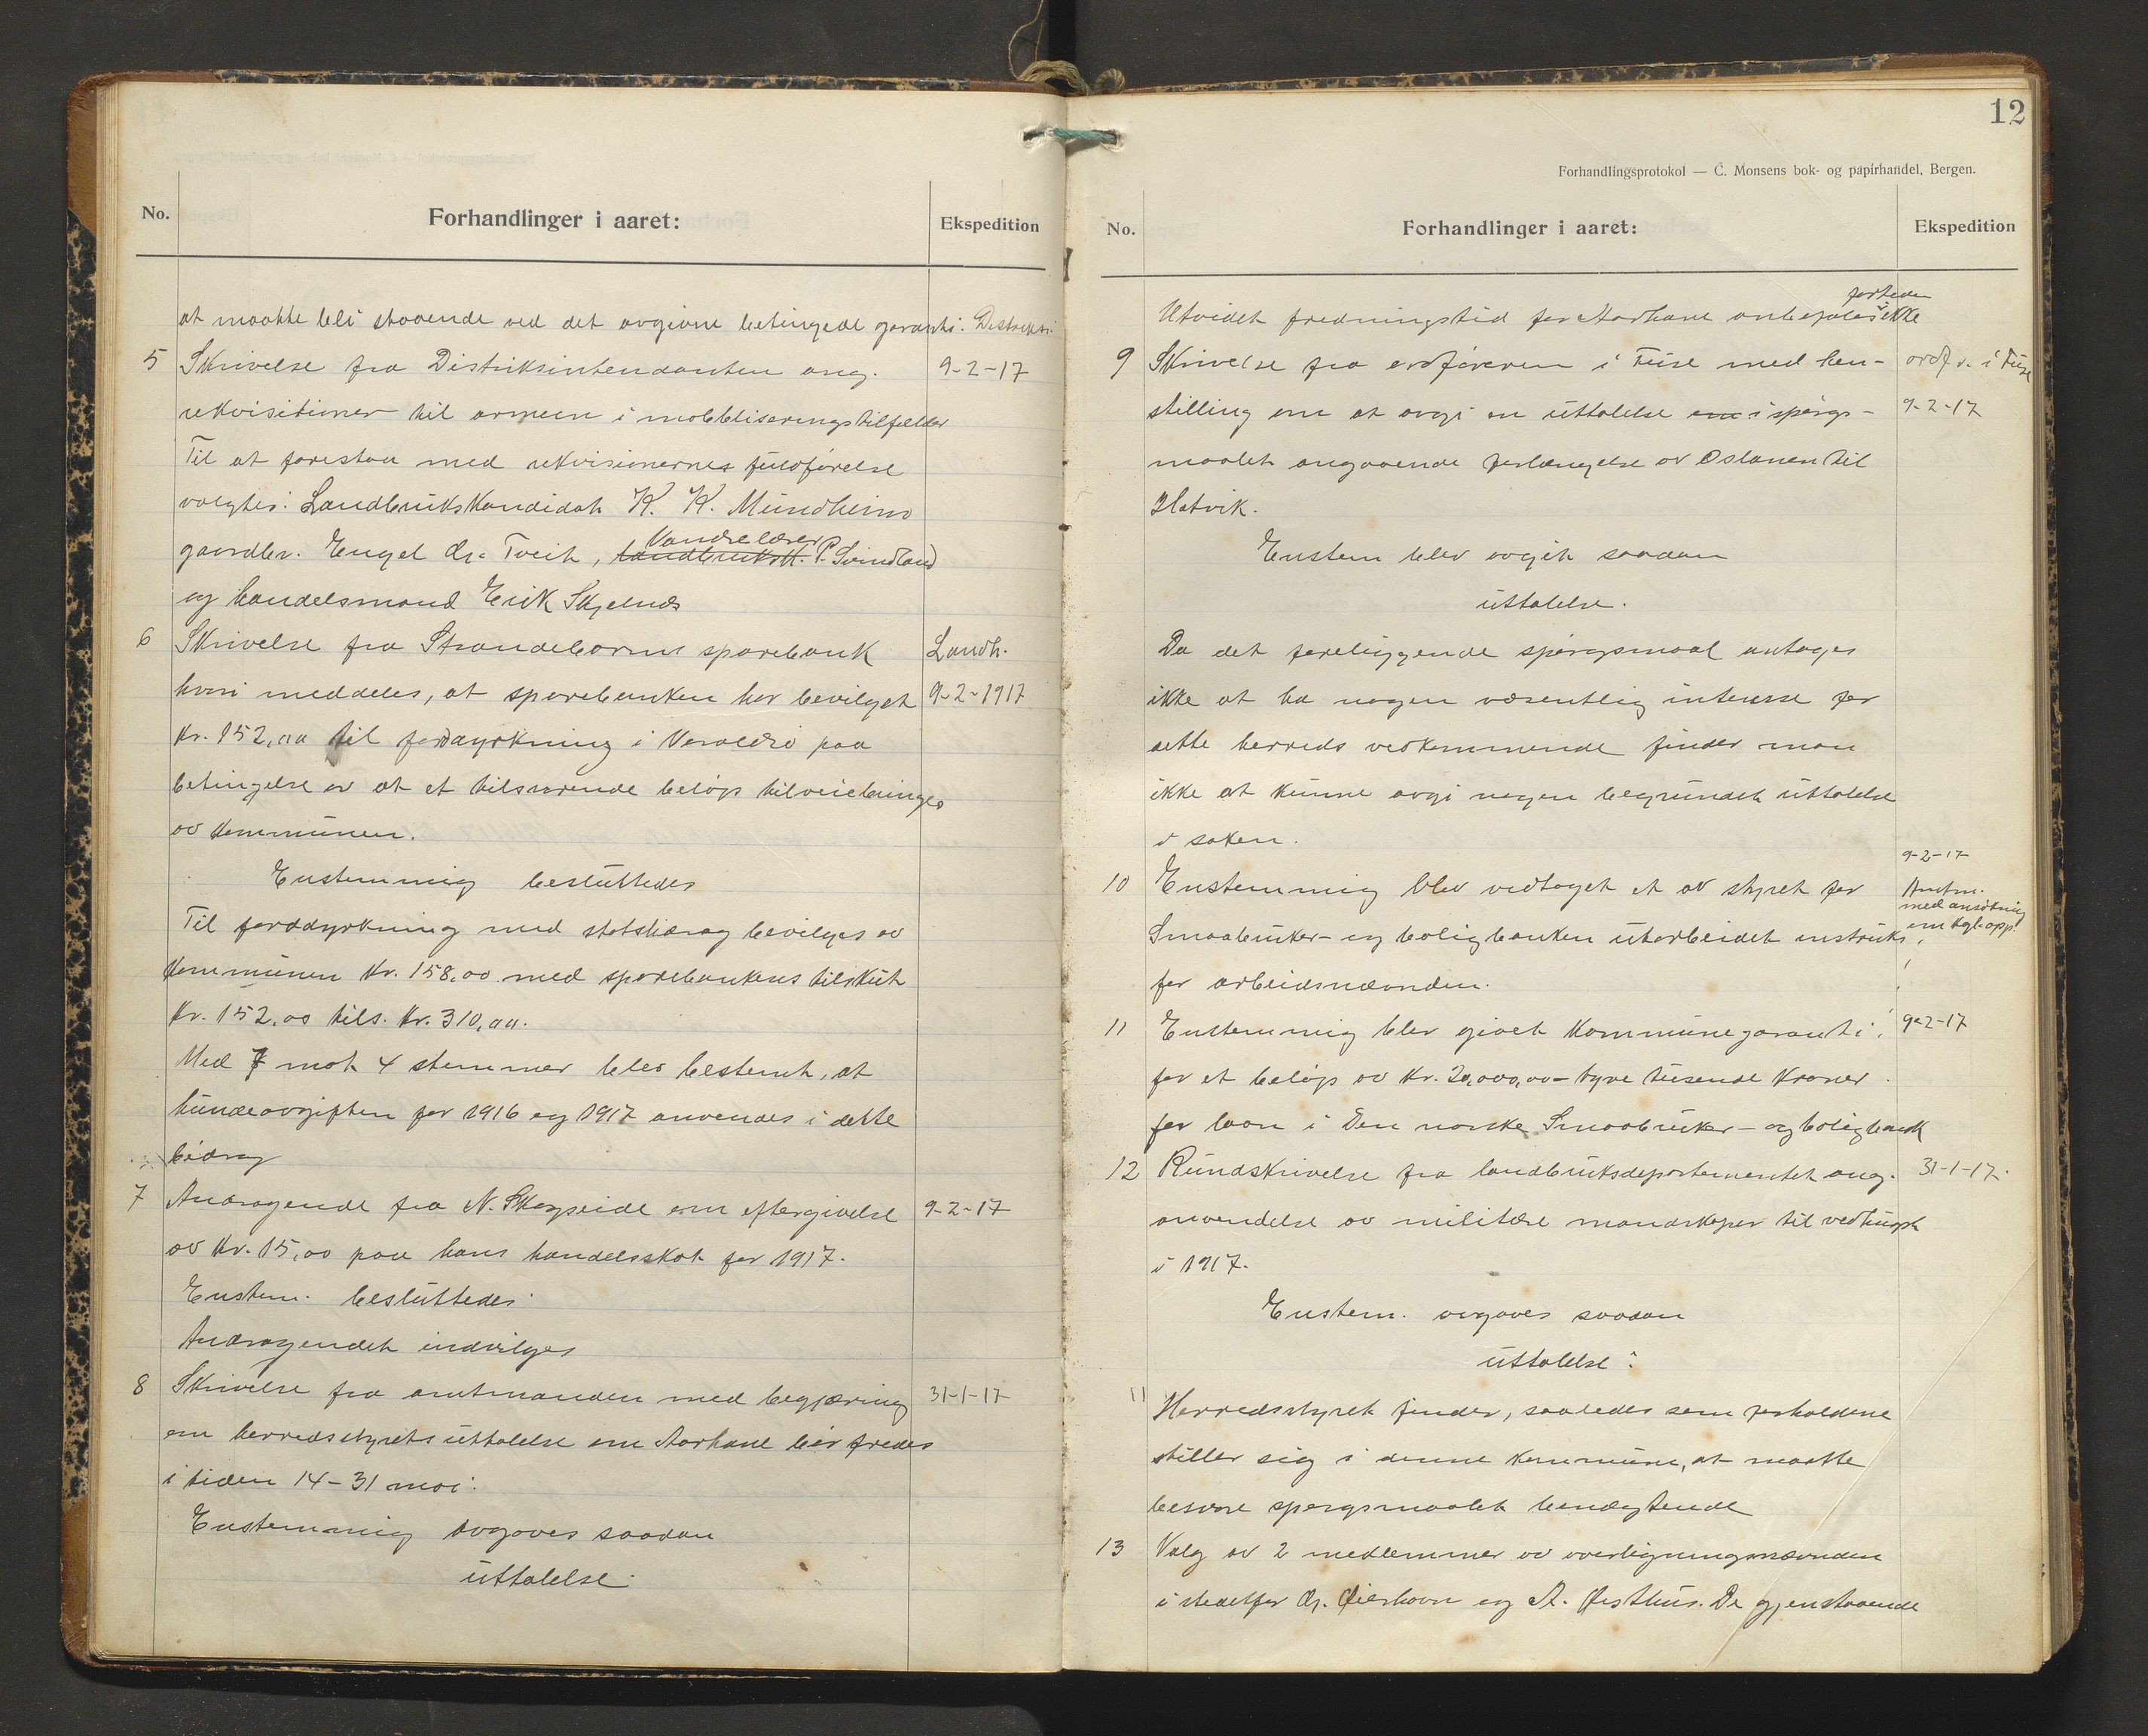 No.
Forhandlinger i aaret:
Ekspedition
at maatte bli staaende ved det avgivne betingede garanti.
5 Skrivelse fra Distriksintendanten ang. 9-2-17
rekvisitioner til armeen i mobbliseringstilfælder
Til at forestaa med rekvisionernes fuldførelse
valgtes: Landbrukskandidat K. K. Mundheim
Vandrelærer
gaardbr. Engel Tveit, landbruksk. P. Svindland
og handelsmand Erik Skjelnes
6 Skrivelse fra Strandebarms sparebank Landh.
hvori meddeles, at sparebanken har bevilget 9-2-1917
Kr. 152,00 til jorddyrkning i Varaldsø paa
betingelse av at et tilsvarende beløp tilveiebringes
av kommunen.
Enstemmig besluttedes
Til jorddyrkning med statsbidrag bevilges av
kommunen kr. 158,00 med sparebankens tilskut
Kr. 152,00 tils. kr. 310,00.
Med 7 mot 4 stemmer blev bestemt, at
hundeavgiften for 1916 og 1917 anvendes i dette
bidrag
7 Andragende fra N. Skogseide om eftergivelse 9-2-17
av kr. 15,00 paa hans handelsskat for 1917.
Enstem. besluttedes:
Andragendet indvilges
8 Skrivelse fra amtmanden med begjæring 31-1-17
om herredsstyrets uttalelse om Aarhane bør fredes
i tiden 14-31 mai:
Enstemmig avgaves saadan
uttalelse:
12
Forhandlingsprotokol — C. Monsens bok- og papirhandel, Bergen.
No.
Forhandlinger i aaret:
Ekspedition
fortiden
Utvidet fredningstid for Aarhane anbefales ikke
9 Skrivelse fra ordføreren i Fuse med hen- ordf. i Fuse
stilling om at avgi en uttalelse om i spørgs- 9-2-17
maalet angaaende forlængelse av Osbanen til
Hatvik.
Enstem blev avgit saadan
uttalelse.
Da det foreliggende spørgsmaal antages
ikke at ha nogen væsentlig interesse for
dette herreds vedkommende finder man
ikke at kunne avgi nogen begrundet uttalelse
i saken.
9-2-17
10 Enstemmig blev vedtaget et av styret for Amtm.
med ansøkning
Smaabruker- og boligbanken utarbeidet instruks om
for arbeidsnævnden.
11 Enstemmig blev givet kommunegaranti 9-2-17
for et beløp av kr. 20,000,00 - tyve tusende kroner
for laan i Den norske Smaabruker- og boligbank
12 Rundskrivelse fra landbruksdepartementet ang. 31-1-17.
anvendelse av militære mandskaper til vedhugst
i 1917.
Enstem. avgaves saadan
uttalelse:
11 Herredsstyret finder, saaledes som forholdene
stiller sig i denne kommune, at maatte
besvare spørgsmaalet benægtende
13 Valg av 2 medlemmer av overligningsnævnden
i stedetfor Øierhavn og A. Østhus. De gjenstaaende